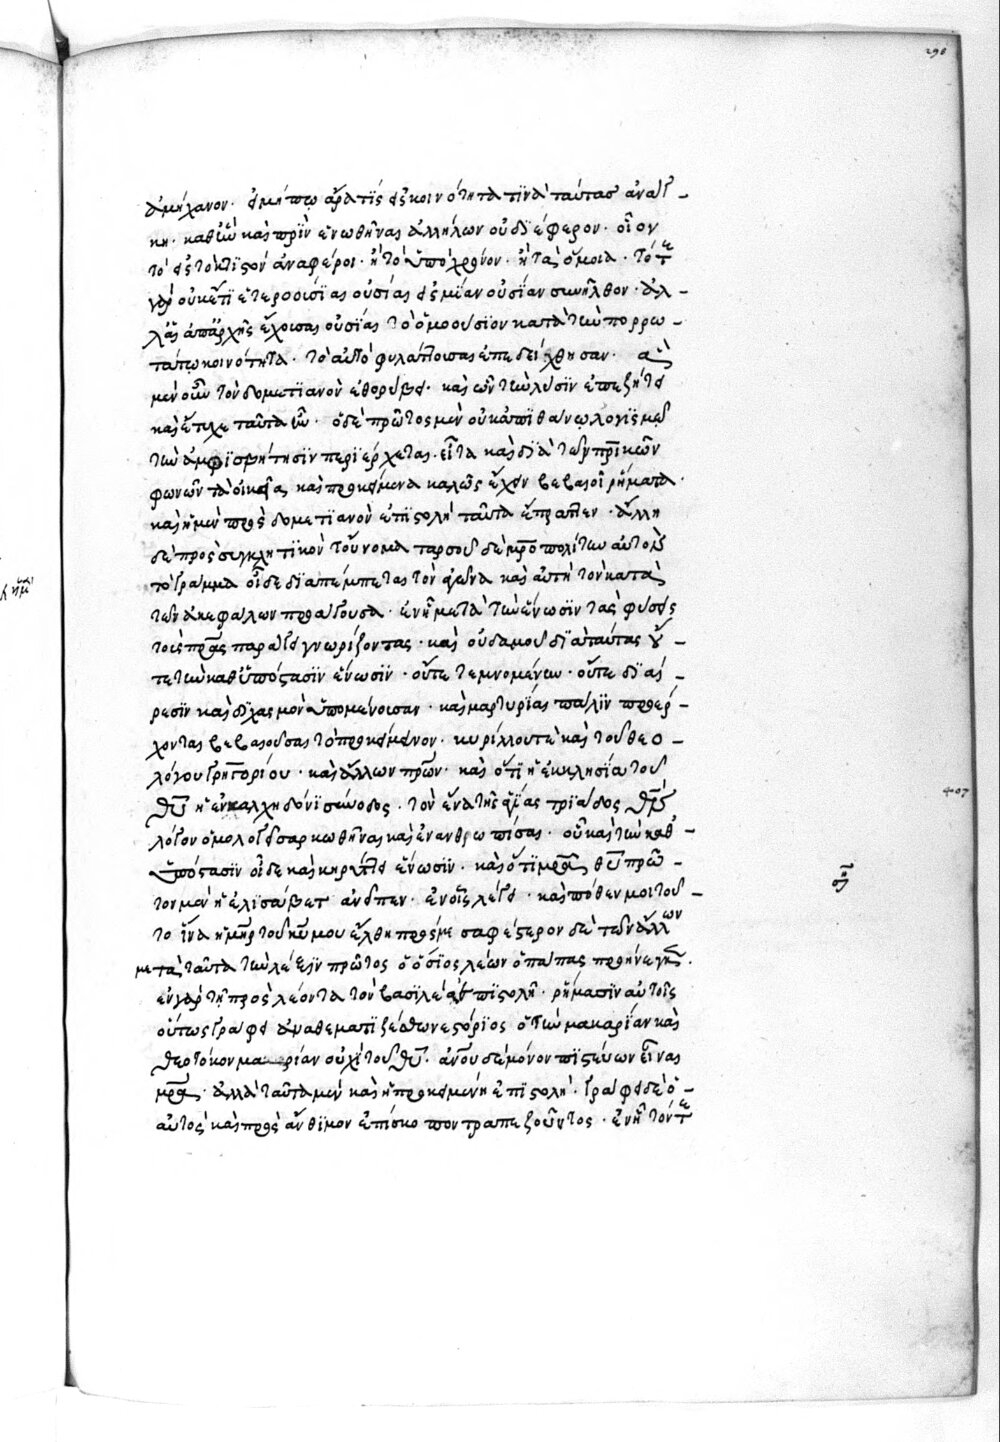 298
ἀμήχανον· εἰ μήπω ἄρα τίς εἰς κοινότητα τινὰ ταύτας ἀνάγ-
κη· καθ' ἣν καὶ πρὶν ἑνωθῆναι ἀλλήλων οὐ διέφερον· οἷον
τὸ εἰς τὸ κτιστὸν ἀναφέροι· ἢ τὸ ὑπὸ χρόνον· ἢ τὰ ὅμοια·
γὰρ οὐκέτι ἑτεροούσιαι οὐσίαι εἰς μίαν οὐσίαν συνῆλθον· ἀλ-
λ' αἱ ἀπαρχῆς ἔχουσαι οὐσίαι τὸ ὁμοούσιον κατὰ τὴν πορρω-
τάτω κοινότητα· τὸ αὐτὸ φυλάττουσαι ἐπεδείχθησαν· ἃ
μὲν οὖν τὸν δομετιανὸν ἐθορύβει· καὶ ὧν τὴν λύσιν ἐπεζήτει
καὶ ἔτυχε ταῦτα ἦν· ὁ δὲ πρῶτος μὲν οὐκ ἀπιθάνῳ λογισμῷ
τὴν ἀμφισβήτησιν περιέρχεται· εἶτα καὶ διὰ τῶν πρικῶν
φωνῶν τὰ οἰκεῖα καὶ προκείμενα καλῶς ἔχειν βεβαιοῖ ῥήματα·
καὶ ἡ μὲν πρὸς δομετιανὸν ἐπιστολὴ ταῦτα ἔπραττεν· ἄλλη
δὲ πρὸς συγκλητικὸν τοὔνομα ταρσοῦ δὲ μητροπολίτην αὐτοῦ
τὸ γράμμα οἶδε διαπέμπεται τὸν ἀγῶνα καὶ αὐτὴ τὸν κατὰ
τῶν ἀκεφάλων προάγουσα· ἐν ᾗ μετὰ τὴν ἕνωσιν τὰς φύσεις
τοὺς πρας παράγει γνωρίζοντας· καὶ οὐδαμοῦ διὰ ταύτας οὔ-
τε τὴν καθ' ὑπόστασιν ἕνωσιν· οὔτε τεμνομένην· οὔτε διαί-
ρεσιν καὶ διχασμὸν ὑπομένουσαν· καὶ μαρτυρίαι πάλιν προέρ-
χονται βεβαιοῦσαι τὸ προκείμενον· κυρίλλου τὲ καὶ τοῦ θεο-
λόγου γρηγορίου· καὶ ἄλλων πρων· καὶ ὅτι ἡ ἐκκλησία τοῦ
θυ ἡ ἐν καλχηδόνι σύνοδος· τὸν ἕνα τῆς ἁγίας τριάδος θν
λόγον ὁμολογεῖ σαρκωθῆναι καὶ ἐνανθρωπίσαι· οὗ καὶ τὴν καθ'-
ὑπόστασιν οἶδε καὶ κηρύττει ἕνωσιν· καὶ ὅτι μρα θυ πρῶ-
τον μὲν ἡ ἐλισάβετ ἀνεῖπεν· ἐν οἷς λέγει· καὶ πόθεν μοι τοῦ-
το ἵνα ἡ μηρ τοῦ κυ μου ἔλθη πρός με σαφέστερον δὲ τῶν ἄλλων
μετὰ ταῦτα τὴν λέξιν πρῶτος ὁ ὅσιος λέων ὁ πάπας προήνεγκε·
ἐν γὰρ τῇ πρὸς λέοντα τὸν βασιλέα ἐπιστολῇ· ῥήμασιν αὐτοῖς
οὕτως γράφει ἀναθεματιζέσθω νεστόριος ὁ τὴν μακαρίαν καὶ
θεοτόκον μαρίαν οὐχὶ τοῦ θυ· ἀνου δὲ μόνον πιστεύων εἶναι
μρα· ἀλλὰ ταῦτα μὲν καὶ ἡ προκειμένη ἐπιστολή· γράφει δὲ ὁ-
αὐτὸς καὶ πρὸς ἄνθιμον ἐπίσκοπον τραπεζοῦντος· ἐν ᾗ τόν τε
407